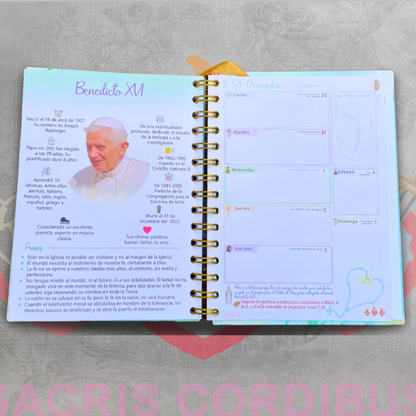 Benedicto XVI
Nació el 16 de abril de 1927.
Su nombre es Joseph
Ratzinger.
Papa no. 265, fue elegido
a los 78 años. Su
pontificado duró 8 años.
Aprendió 10
idiomas, entre ellos
alemán, italiano,
francés, latín, inglés,
español, griego y
hebreo.
Es un excelente
pianista, experto en música
clásica.
De una espiritualidad
profunda, dedicado al estudio
de la teología y a la
investigación.
De 1962-1965
Experto en el
Concilio Vaticano II.
De 1981-2005
Prefecto de la
Congregación para la
Doctrina de la Fe.
Murió el 31 de
diciembre del 2022.
Sus últimas palabras:
Frases
Sólo en la Iglesia es posible ser cristiano y no al margen de la Iglesia.
El mundo necesita el testimonio de nuestra fe, ciertamente a Dios.
La fe no se opone a vuestros ideales más altos, al contrario, los exalta y
perfecciona.
No tengas miedo al mundo, ni al futuro, ni a sus debilidades. El Señor les ha
otorgado vivir en este momento de la historia, para que gracias a la fe de
ustedes siga resonando su nombre en toda la Tierra.
La razón no se salvará sin la fe, pero la fe sin la razón, no será humana.
Cuando el relativismo moral se absolutiza en nombre de la tolerancia, los
derechos básicos se relativizan y se abre la puerta al totalitarismo.
S. 53 Diciembre
Lunes 30
Martes 31
Miércoles
Sábado 4
Jueves 2
Domingo
Viernes 3
SACRIS CORDIBUS